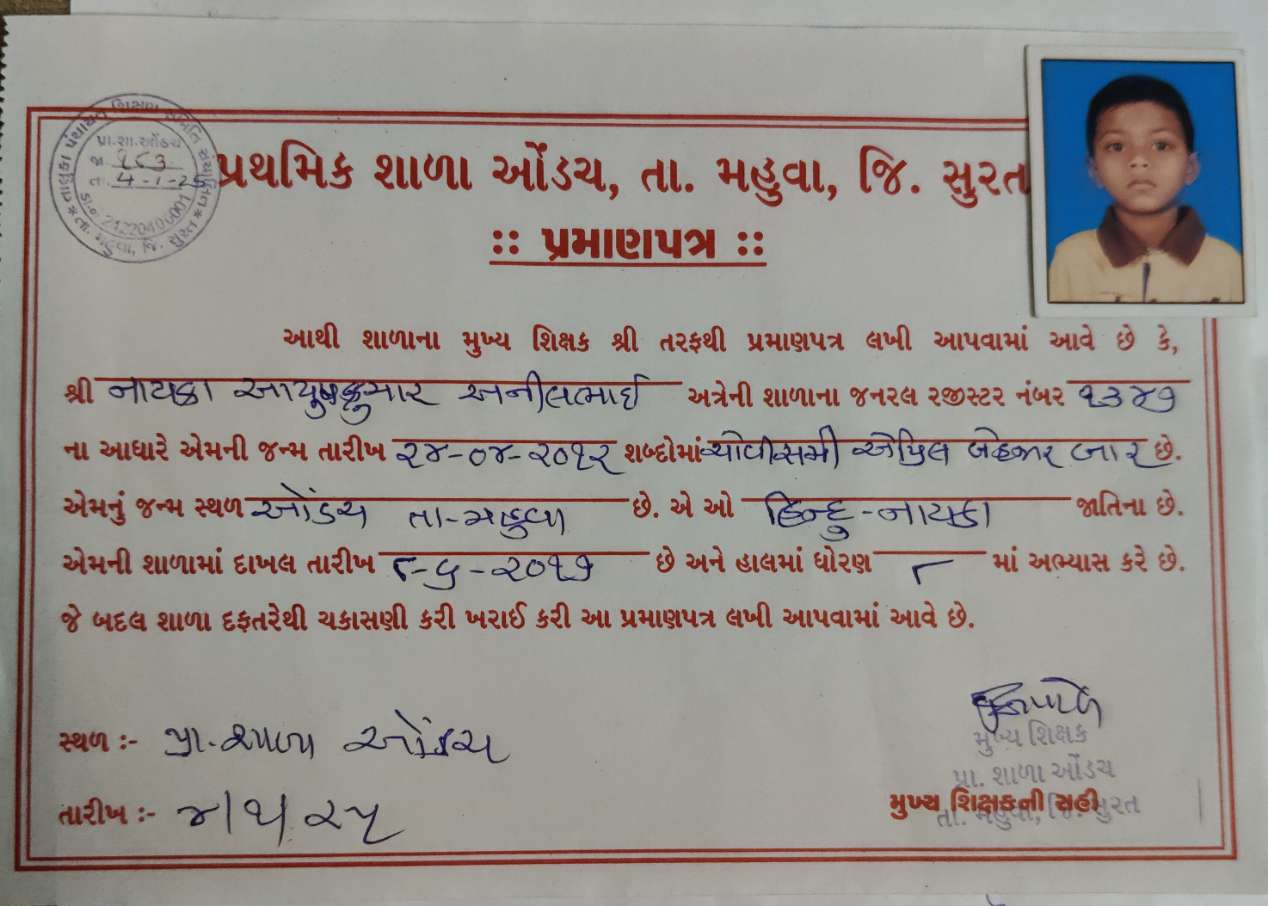 તાલુકા પંચાયત શિક્ષણ સમિતિ સંચાલિત
પ્રા.શા.ઓંડચ
જા
તા. 4-1-25
24220406001
તા. મહુવા, જિ. સુરત
પ્રથમિક શાળા ઓંડચ, તા. મહુવા, જિ. સુરત
:: પ્રમાણપત્ર ::
આથી શાળાના મુખ્ય શિક્ષક શ્રી તરફથી પ્રમાણપત્ર લખી આપવામાં આવે છે કે,
શ્રી નાયકા આયુષકુમાર અનીલભાઈ અત્રેની શાળાના જનરલ રજીસ્ટર નંબર ૧૩૪૧
ના આધારે એમની જન્મ તારીખ ૨૪-૦૪-૨૦૧૨ શબ્દોમાં ચોવીસમી એપ્રિલ બેહજાર બાર છે.
એમનું જન્મ સ્થળ ઓંડચ તા-મહુવા છે. એ ઓ હિન્દુ-નાયકા જાતિના છે.
એમની શાળામાં દાખલ તારીખ ૮-૬-૨૦૧૭ છે અને હાલમાં ધોરણ ૮ માં અભ્યાસ કરે છે.
જે બદલ શાળા દફતરેથી ચકાસણી કરી ખરાઈ કરી આ પ્રમાણપત્ર લખી આપવામાં આવે છે.
સ્થળ :- પ્રા-શાળા ઓંડચ
મુખ્ય શિક્ષક
પ્રા. શાળા ઓંડચ
તા. મહુવા, જિ. સુરત
મુખ્ય શિક્ષકની સહી
તારીખ :- ૪/૧/૨૫